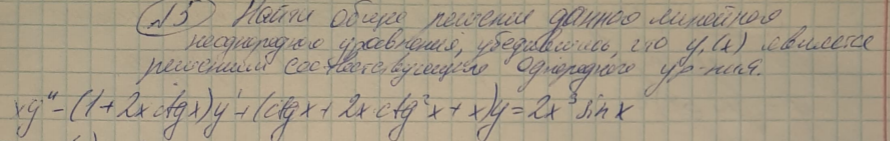 №5 Найти общее решение данного линейного
неоднородного уравнения, убедившись, что y₁(x) является
решением соответствующего однородного ур-ния.
xy'' - (1 + 2x ctgx)y' + (ctgx + 2x ctg²x + x)y = 2x³ sin x